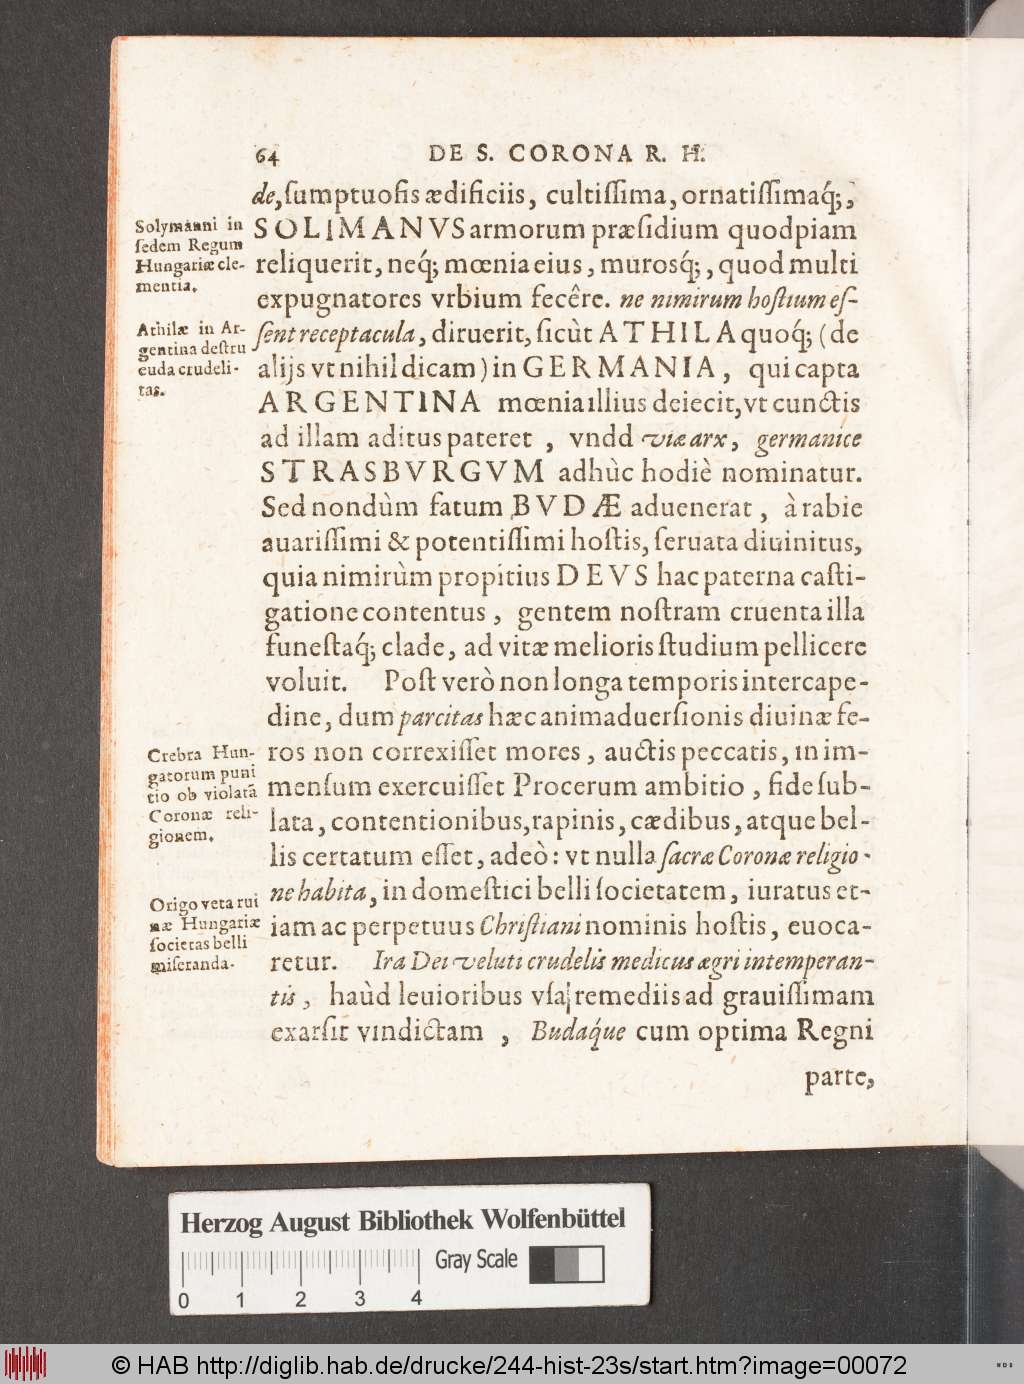 64 DE S. CORONA R. H.
de, ſumptuoſis ædificiis, cultiſſima, ornatiſſimaq́;,
Solymanni in
ſedem Regum
Hungariæ cle-
mentia.
SOLIMANVS armorum præſidium quodpiam
reliquerit, neq́; mœnia eius, murosq́;, quod multi
expugnatores vrbium fecêre. ne nimirum hoſtium eſ-
Athilæ in Ar-
gentina deſtru
euda crudeli-
tas.
ſent receptacula, diruerit, ſicùt ATHILA quoq́; (de
alijs vt nihil dicam) in GERMANIA, qui capta
ARGENTINA mœnia illius deiecit, vt cunctis
ad illam aditus pateret, vndd viæ arx, germanice
STRASBVRGVM adhùc hodiè nominatur.
Sed nondùm fatum BVDÆ aduenerat, à rabie
auariſſimi & potentiſſimi hoſtis, ſeruata diuinitus,
quia nimirùm propitius DEVS hac paterna caſti-
gatione contentus, gentem noſtram cruenta illa
funeſtaq́; clade, ad vitæ melioris ſtudium pellicere
voluit. Poſt verò non longa temporis intercape-
dine, dum parcitas hæc animaduerſionis diuinæ fe-
Crebra Hun-
gatorum puni
tio ob violatã
Coronæ reli-
gionem.
ros non correxiſſet mores, auctis peccatis, in im-
menſum exercuiſſet Procerum ambitio, fide ſub-
lata, contentionibus, rapinis, cædibus, atque bel-
lis certatum eſſet, adeò: vt nulla ſacræ Coronæ religio-
Origo veta rui
næ Hungariæ
ſocietas belli
miſeranda.
ne habita, in domeſtici belli ſocietatem, iuratus et-
iam ac perpetuus Chriſtiani nominis hoſtis, euoca-
retur. Ira Dei veluti crudelis medicus ægri intemperan-
tis, haùd leuioribus vſa remediis ad grauiſſimam
exarſit vindictam, Budaq́ue cum optima Regni
parte,
Herzog August Bibliothek Wolfenbüttel
Gray Scale
0 1 2 3 4
© HAB http://diglib.hab.de/drucke/244-hist-23s/start.htm?image=00072